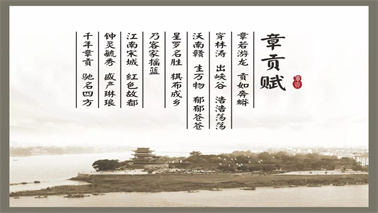 章贡赋
章若游龙 贡如奔骥
穿林涛 出峡谷 浩浩荡荡
沃南赣 生万物 郁郁苍苍
星罗名胜 棋布成乡
乃客家摇篮
江南宋城 红色故都
钟灵毓秀 盛产琳琅
千年章贡 驰名四方